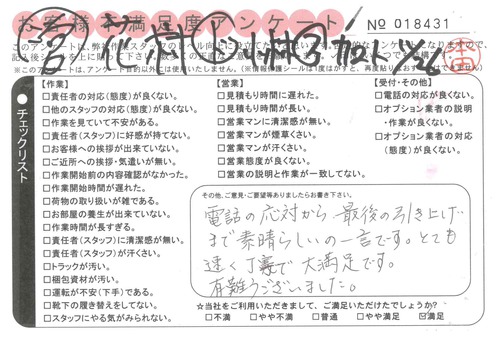 お客様不満足度アンケート
No 018431
【作業】
□責任者の対応(態度)が良くない。
□他のスタッフの対応(態度)が良くない。
□作業を見ていて不安がある。
□責任者(スタッフ)に好感が持てない。
□お客様への挨拶が出来ていない。
□ご近所への挨拶・気遣いが無い。
□作業開始前の内容確認がなかった。
□作業開始時間が遅れた。
□荷物の取り扱いが雑である。
□お部屋の養生が出来ていない。
□作業時間が長すぎる。
□責任者(スタッフ)に清潔感が無い。
□責任者(スタッフ)が汗くさい。
□トラックが汚い。
□梱包資材が汚い。
□運転が不安(下手)である。
□靴下の履き替えをしてない。
□スタッフにやる気がみられない。
【営業】
□見積もり時間に遅れた。
□見積もり時間が長い。
□営業マンに清潔感が無い。
□営業マンが煙草くさい。
□営業マンが汗くさい。
□営業態度が良くない。
□営業の説明と作業が一致してない。
【受付・その他】
□電話の対応が良くない。
□オプション業者の説明
・作業が良くない。
□オプション業者の対応
(態度)が良くない。
●チェックリスト
その他、ご意見・ご要望等ありましたらお書き下さい。
電話の応対から、最後の引き上げ
まで素晴らしいの一言です。とても
速く丁寧で大満足です。
有難うございました。
☆当社をご利用いただきまして、ご満足いただけたでしょうか?
□不満 □やや不満 □普通 □やや満足 ☑満足